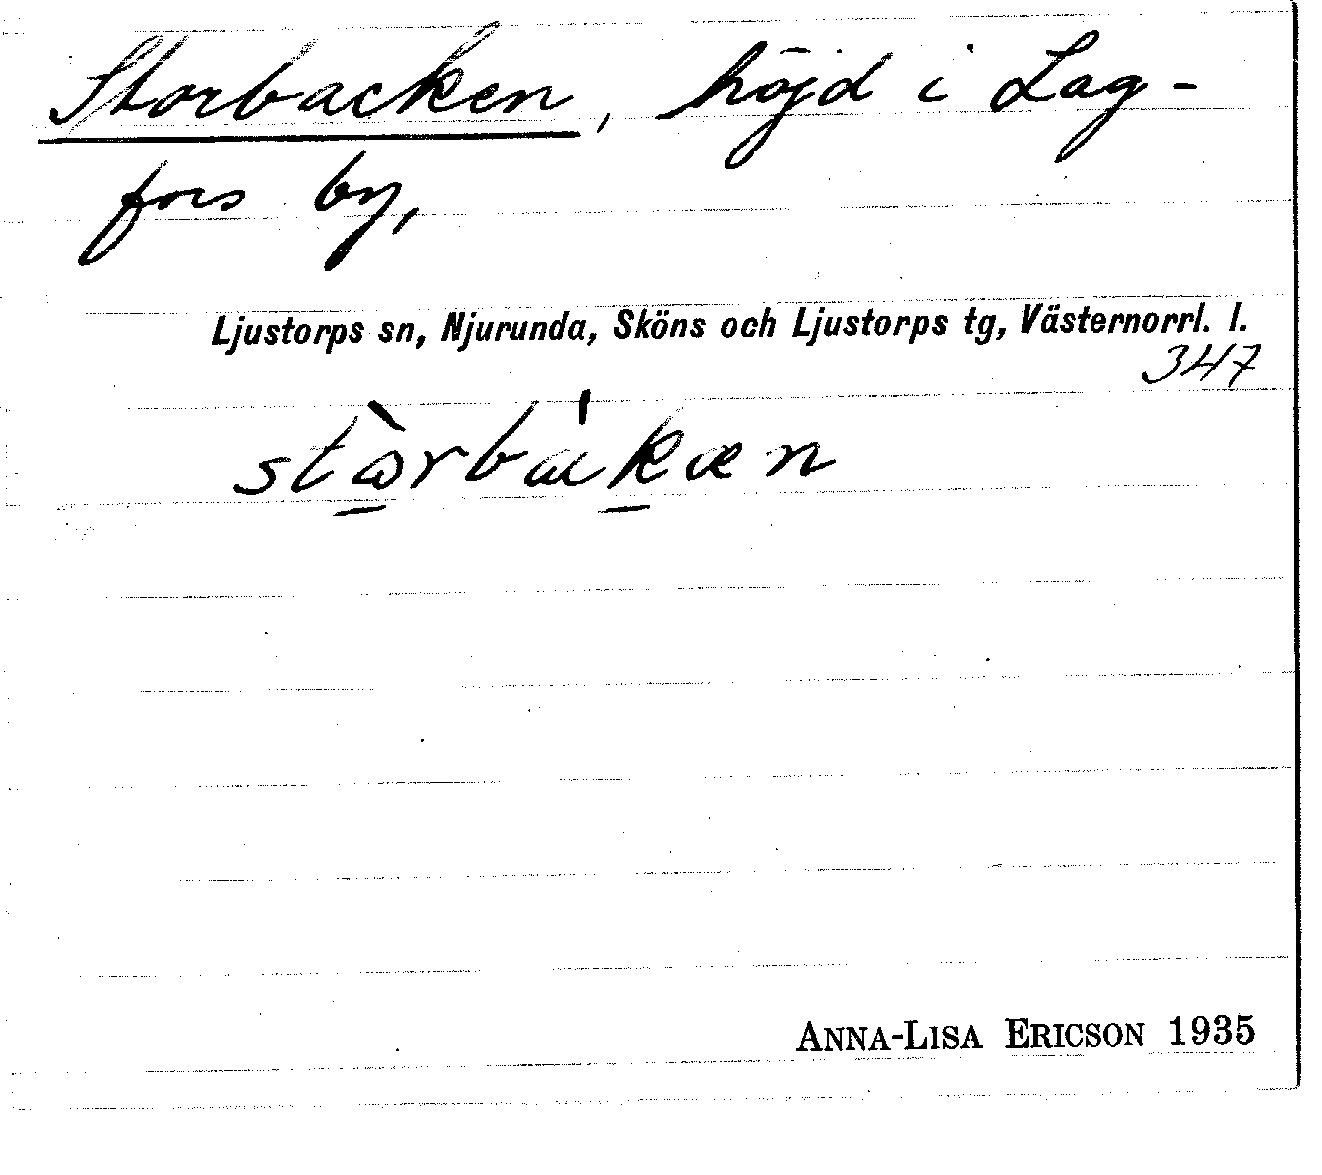 Storbacken, höjd i Lag-
fors by,
Ljustorps sn, Njurunda, Sköns och Ljustorps tg, Västernorrl. l.
347
ANNA-LISA ERICSON 1935